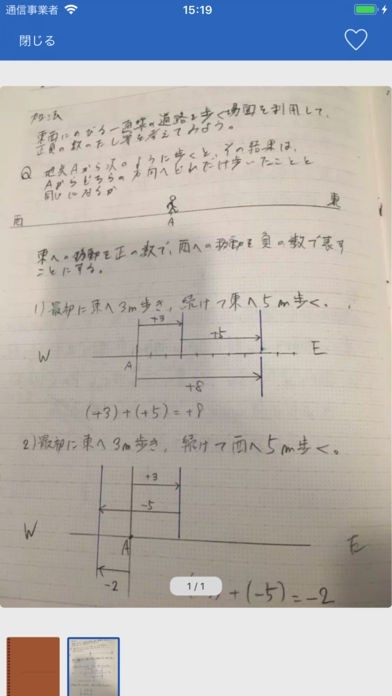 通信事業者 15:19
閉じる
加法
東西にのびる一直線の道路を歩く場面を利用して、
正負の数のたし算を考えてみよう。
Q 地点Aから次のように歩くと、その結果は、
Aからどちらの方向へどれだけ歩いたことと
同じになるか
西 A 東
東への移動を正の数で、西への移動を負の数で表す
ことにする。
1)最初に東へ3m歩き、続けて東へ5m歩く。
+3
+5
W A E
+8
(+3)+(+5)=+8
2)最初に東へ3m歩き、続けて西へ5m歩く。
+3
-5
W A E
-2
1/1
+(-5)=-2